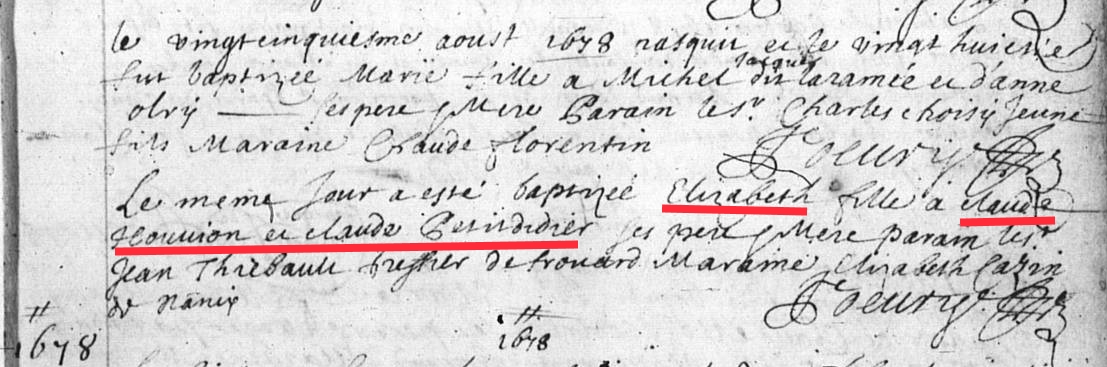 le vingtcinquiesme aoust 1678 nasquit et le vingt huictie
fut baptizée Marie fille a Michel Jacques dit laramée et d'anne
olry ses pere & Mere Parain le sr. Charles choisy Jeune
fils Maraine Claude florentin
Le meme Jour a esté baptizée Elizabeth fille a claude
et claude Petitdidier ses pere & Mere parain le sr
Jean Thiebault greffier de frouard Maraine Elizabeth Cazin
de Nancy
1678 1678